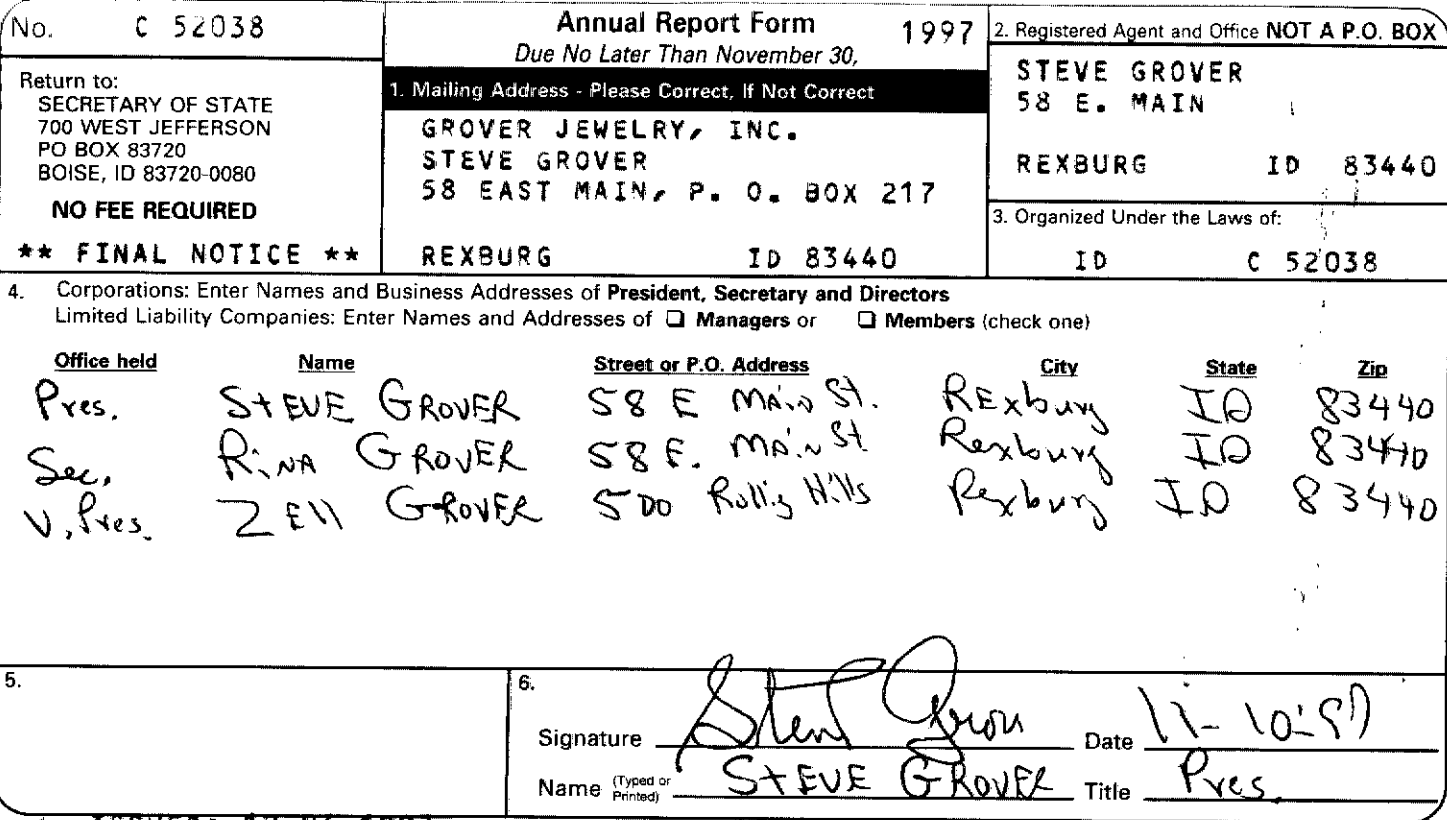 No. C 52038
Return to:
SECRETARY OF STATE
700 WEST JEFFERSON
PO BOX 83720
BOISE, ID 83720-0080
NO FEE REQUIRED
** FINAL NOTICE **
Annual Report Form 1997
Due No Later Than November 30,
1. Mailing Address - Please Correct, If Not Correct
GROVER JEWELRY, INC.
STEVE GROVER
58 EAST MAIN, P. O. BOX 217
REXBURG ID 83440
2. Registered Agent and Office NOT A P.O. BOX
STEVE GROVER
58 E. MAIN
REXBURG ID 83440
3. Organized Under the Laws of:
ID C 52038
4. Corporations: Enter Names and Business Addresses of President, Secretary and Directors
Limited Liability Companies: Enter Names and Addresses of ❑ Managers or ❑ Members (check one)
Office held Name Street or P.O. Address City State Zip
Pres. STEVE GROVER 58 E MAIN St. RExburg ID 83440
Sec. RiNA GROVER 58 E. MAIN St Rexburg ID 83440
V. Pres. ZEll GROVER 500 Rollig Hills Rexburg ID 83440
5.
6.
Signature Steve Grover Date 11-10-97
Name (Typed or Printed) STEVE GROVER Title Pres.